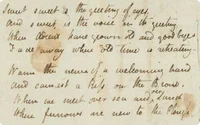 Sweet sweet is the greeting of eyes,
And sweet is the voice in its greeting
When Adieux have grown old and goodbyes
Fade away where old time is retreating
Warm the nerve of a welcoming hand
And earnest a kiss on the Brow,
When we meet over sea and o'er Land
Where furrows are new to the Plough